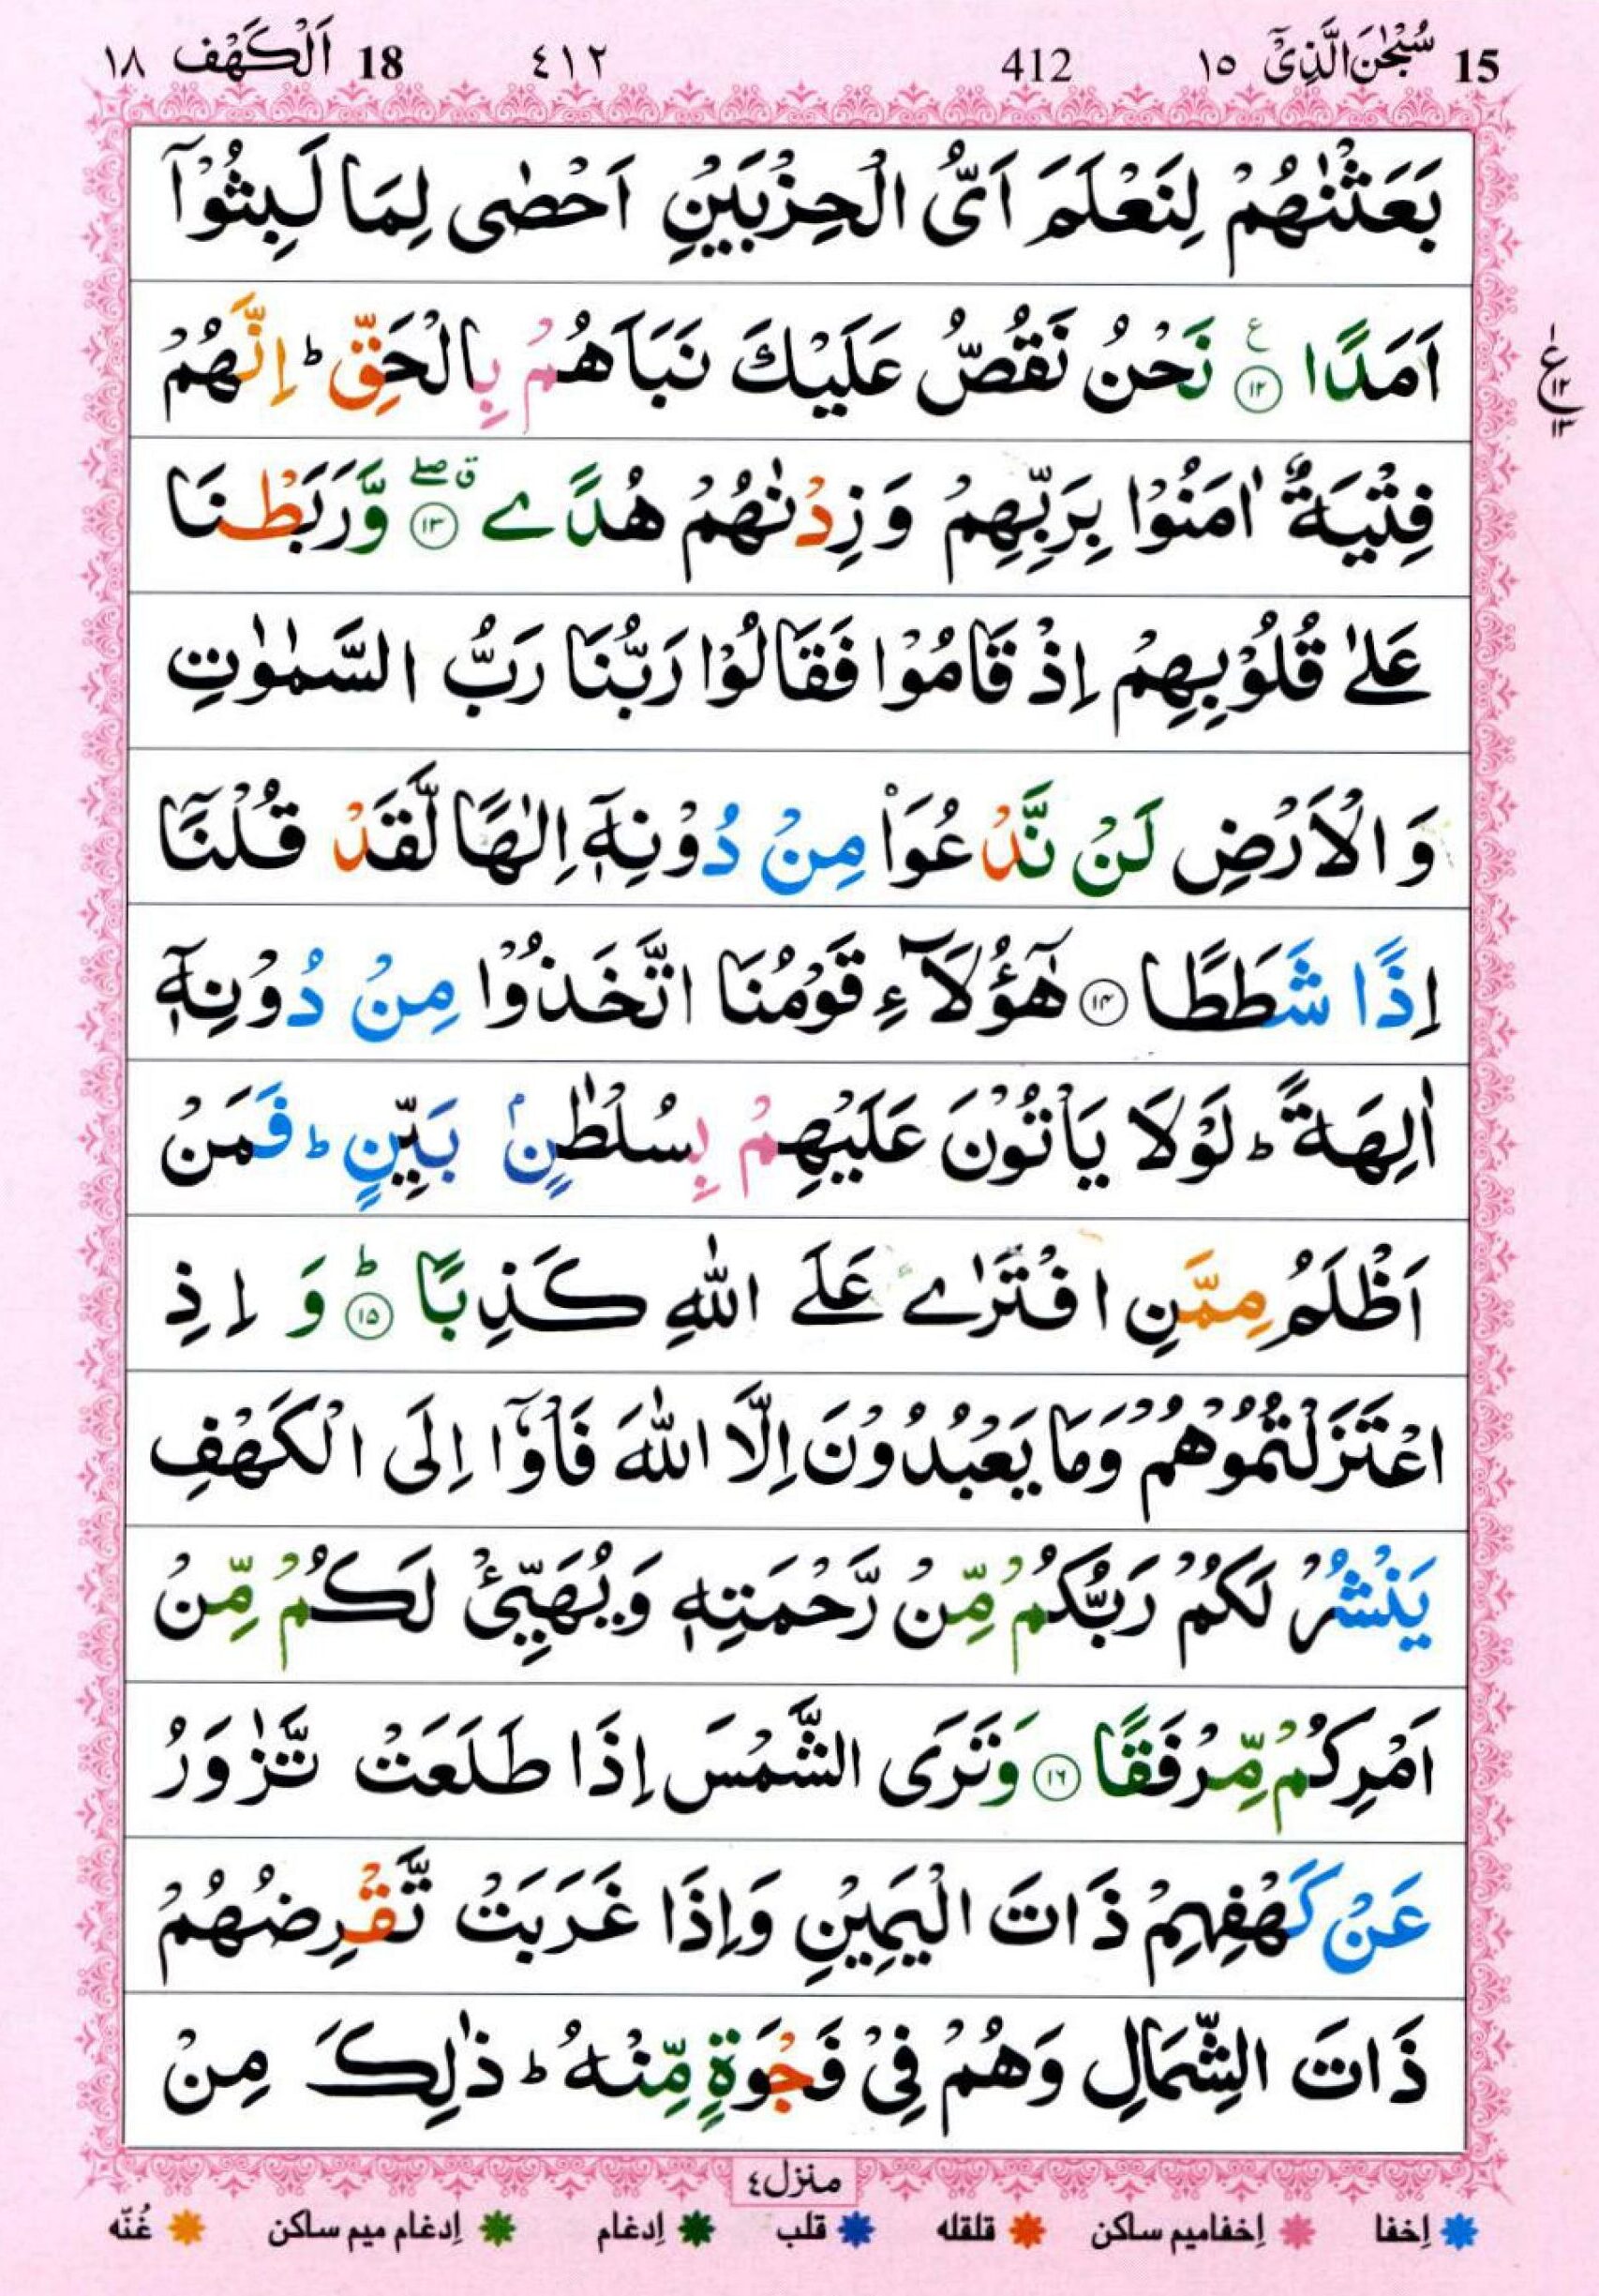 15 سُبْحٰنَ الَّذِیْۤ ۱۵ 412 ٤١٢ 18 اَلْكَهْف ۱۸
بَعَثْنٰهُمْ لِنَعْلَمَ اَیُّ الْحِزْبَیْنِ اَحْصٰی لِمَا لَبِثُوْۤا
اَمَدًا ؑ ۱۲ نَحْنُ نَقُصُّ عَلَیْكَ نَبَاَهُمْ بِالْحَقِّ ؕ اِنَّهُمْ
ع ۱۲ ۱۳
فِتْیَةٌ اٰمَنُوْا بِرَبِّهِمْ وَ زِدْنٰهُمْ هُدًے ۱۳ ق صلے وَّرَبَطْنَا
عَلٰی قُلُوْبِهِمْ اِذْ قَامُوْا فَقَالُوْا رَبُّنَا رَبُّ السَّمٰوٰتِ
وَ الْاَرْضِ لَنْ نَّدْعُوَا۠ مِنْ دُوْنِهٖۤ اِلٰهًا لَّقَدْ قُلْنَاۤ
اِذًا شَطَطًا ۱۴ هٰۤؤُلَآءِ قَوْمُنَا اتَّخَذُوْا مِنْ دُوْنِهٖۤ
اٰلِهَةً ؕ لَوْلَا یَاْتُوْنَ عَلَیْهِمْ بِسُلْطٰنٍۭ بَیِّنٍ ؕ فَمَنْ
اَظْلَمُ مِمَّنِ افْتَرٰے عَلَے اللّٰهِ كَذِبًا ؕ ۱۵ وَ اِذِ
اعْتَزَلْتُمُوْهُمْ وَمَا یَعْبُدُوْنَ اِلَّا اللّٰهَ فَاْوٗۤا اِلَی الْكَهْفِ
یَنْشُرْ لَكُمْ رَبُّكُمْ مِّنْ رَّحْمَتِهٖ وَیُهَیِّئْ لَكُمْ مِّنْ
اَمْرِكُمْ مِّرْفَقًا ۱۶ وَتَرَی الشَّمْسَ اِذَا طَلَعَتْ تَّزٰوَرُ
عَنْ كَهْفِهِمْ ذَاتَ الْیَمِیْنِ وَاِذَا غَرَبَتْ تَّقْرِضُهُمْ
ذَاتَ الشِّمَالِ وَهُمْ فِیْ فَجْوَةٍ مِّنْهُ ؕ ذٰلِكَ مِنْ
منزل ٤
اِخفا اِخفامیم ساكن قلقله قلب اِدغام اِدغام میم ساكن غُنّه